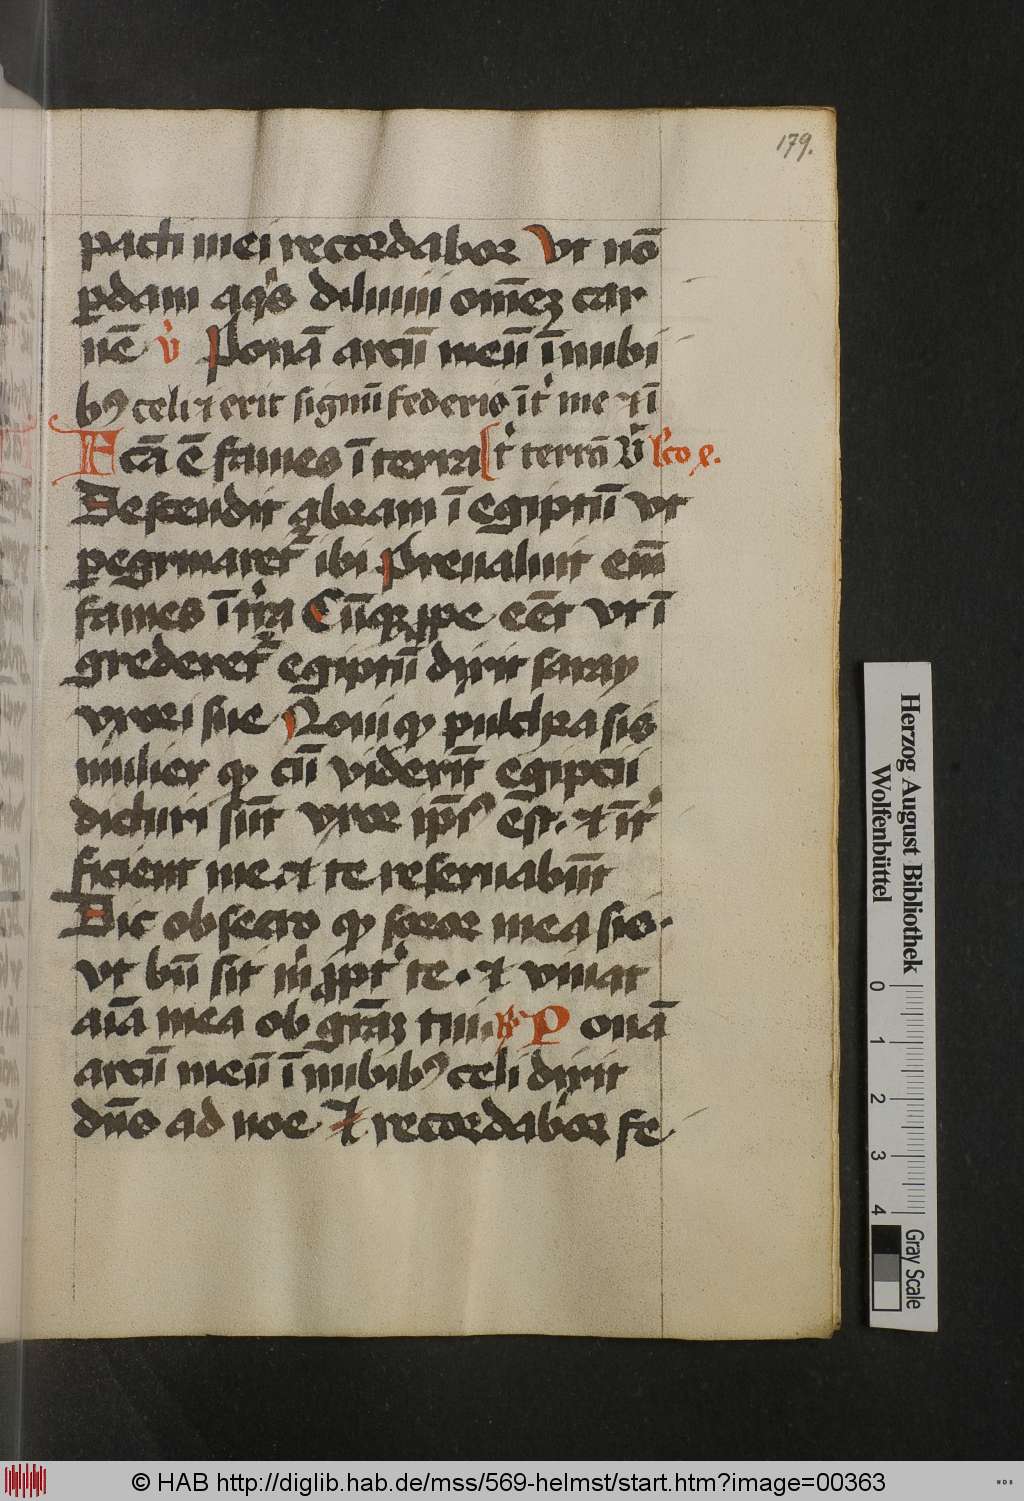 179.
pacti mei recordabor Vt nō
ꝑdam aqͥs diluuii om̄eꝫ car
nē v̾ Ponā arcū meū ī nubi
bꝰ celi ⁊ erit signū federis īt͛ me ⁊ ī
Fcā ē fames ī terra t͛ terrā Vͫ lc̄o x.
Descendit abram ī egiptū vt
ꝑegrinaretᷣ ibi Preualuit em̄
fames ī tr̄a Cūqꝫ ꝓpe eēt vt ī
grederetᷣ egiptū dixit saray
vxori sue Noui ꝙ pulchra sis
mulier ꝙ cū viderīt egiptii
dicturi sūt vxor ip̄ius est. ⁊ īt͛
ficient me. ⁊ te reseruabūt
Dic obsecro ꝙ soror mea sis.
vt bn̄ sit m̄ ꝓpt͛ te. ⁊ viuat
aīa mea ob grāꝫ tui. ℟ P onā
arcū meū ī nubibꝰ celi dixit
dn̄s ad noe ⁊ recordabor fe
Herzog August Bibliothek
Wolfenbüttel
0 1 2 3 4
Gray Scale
© HAB http://diglib.hab.de/mss/569-helmst/start.htm?image=00363